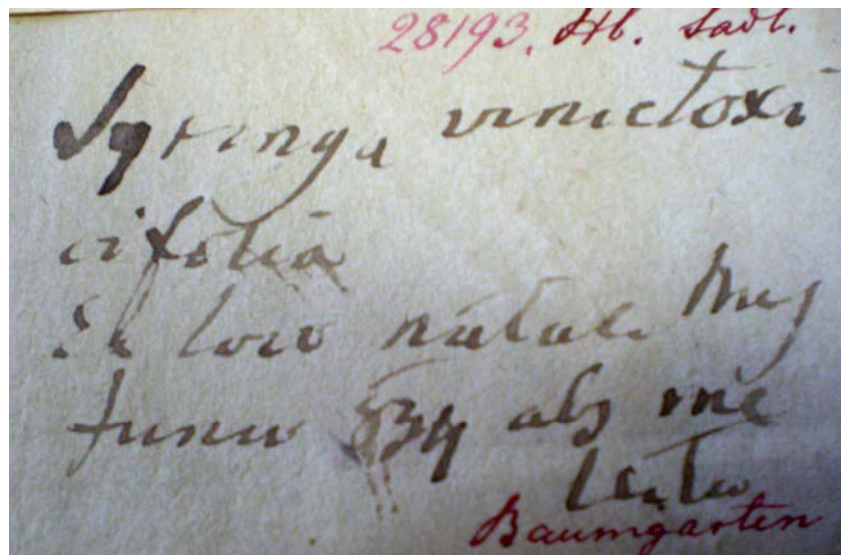 28193. Hb. Sadl.
Syringa vincetoxi
cifolia
loco natali
Junio 834 me
Baumgarten